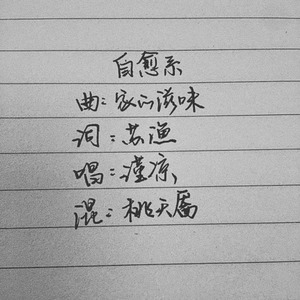 自愈系
曲:家的滋味
词:苏渔
唱:瑾凉
混:桃夭厮